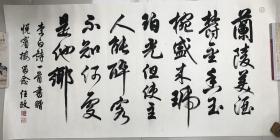 蘭陵美酒
鬱金香玉
椀盛來琥
珀光但使主
人能醉客
不知何處
是他鄉
李白詩一首書贈
留念 任政